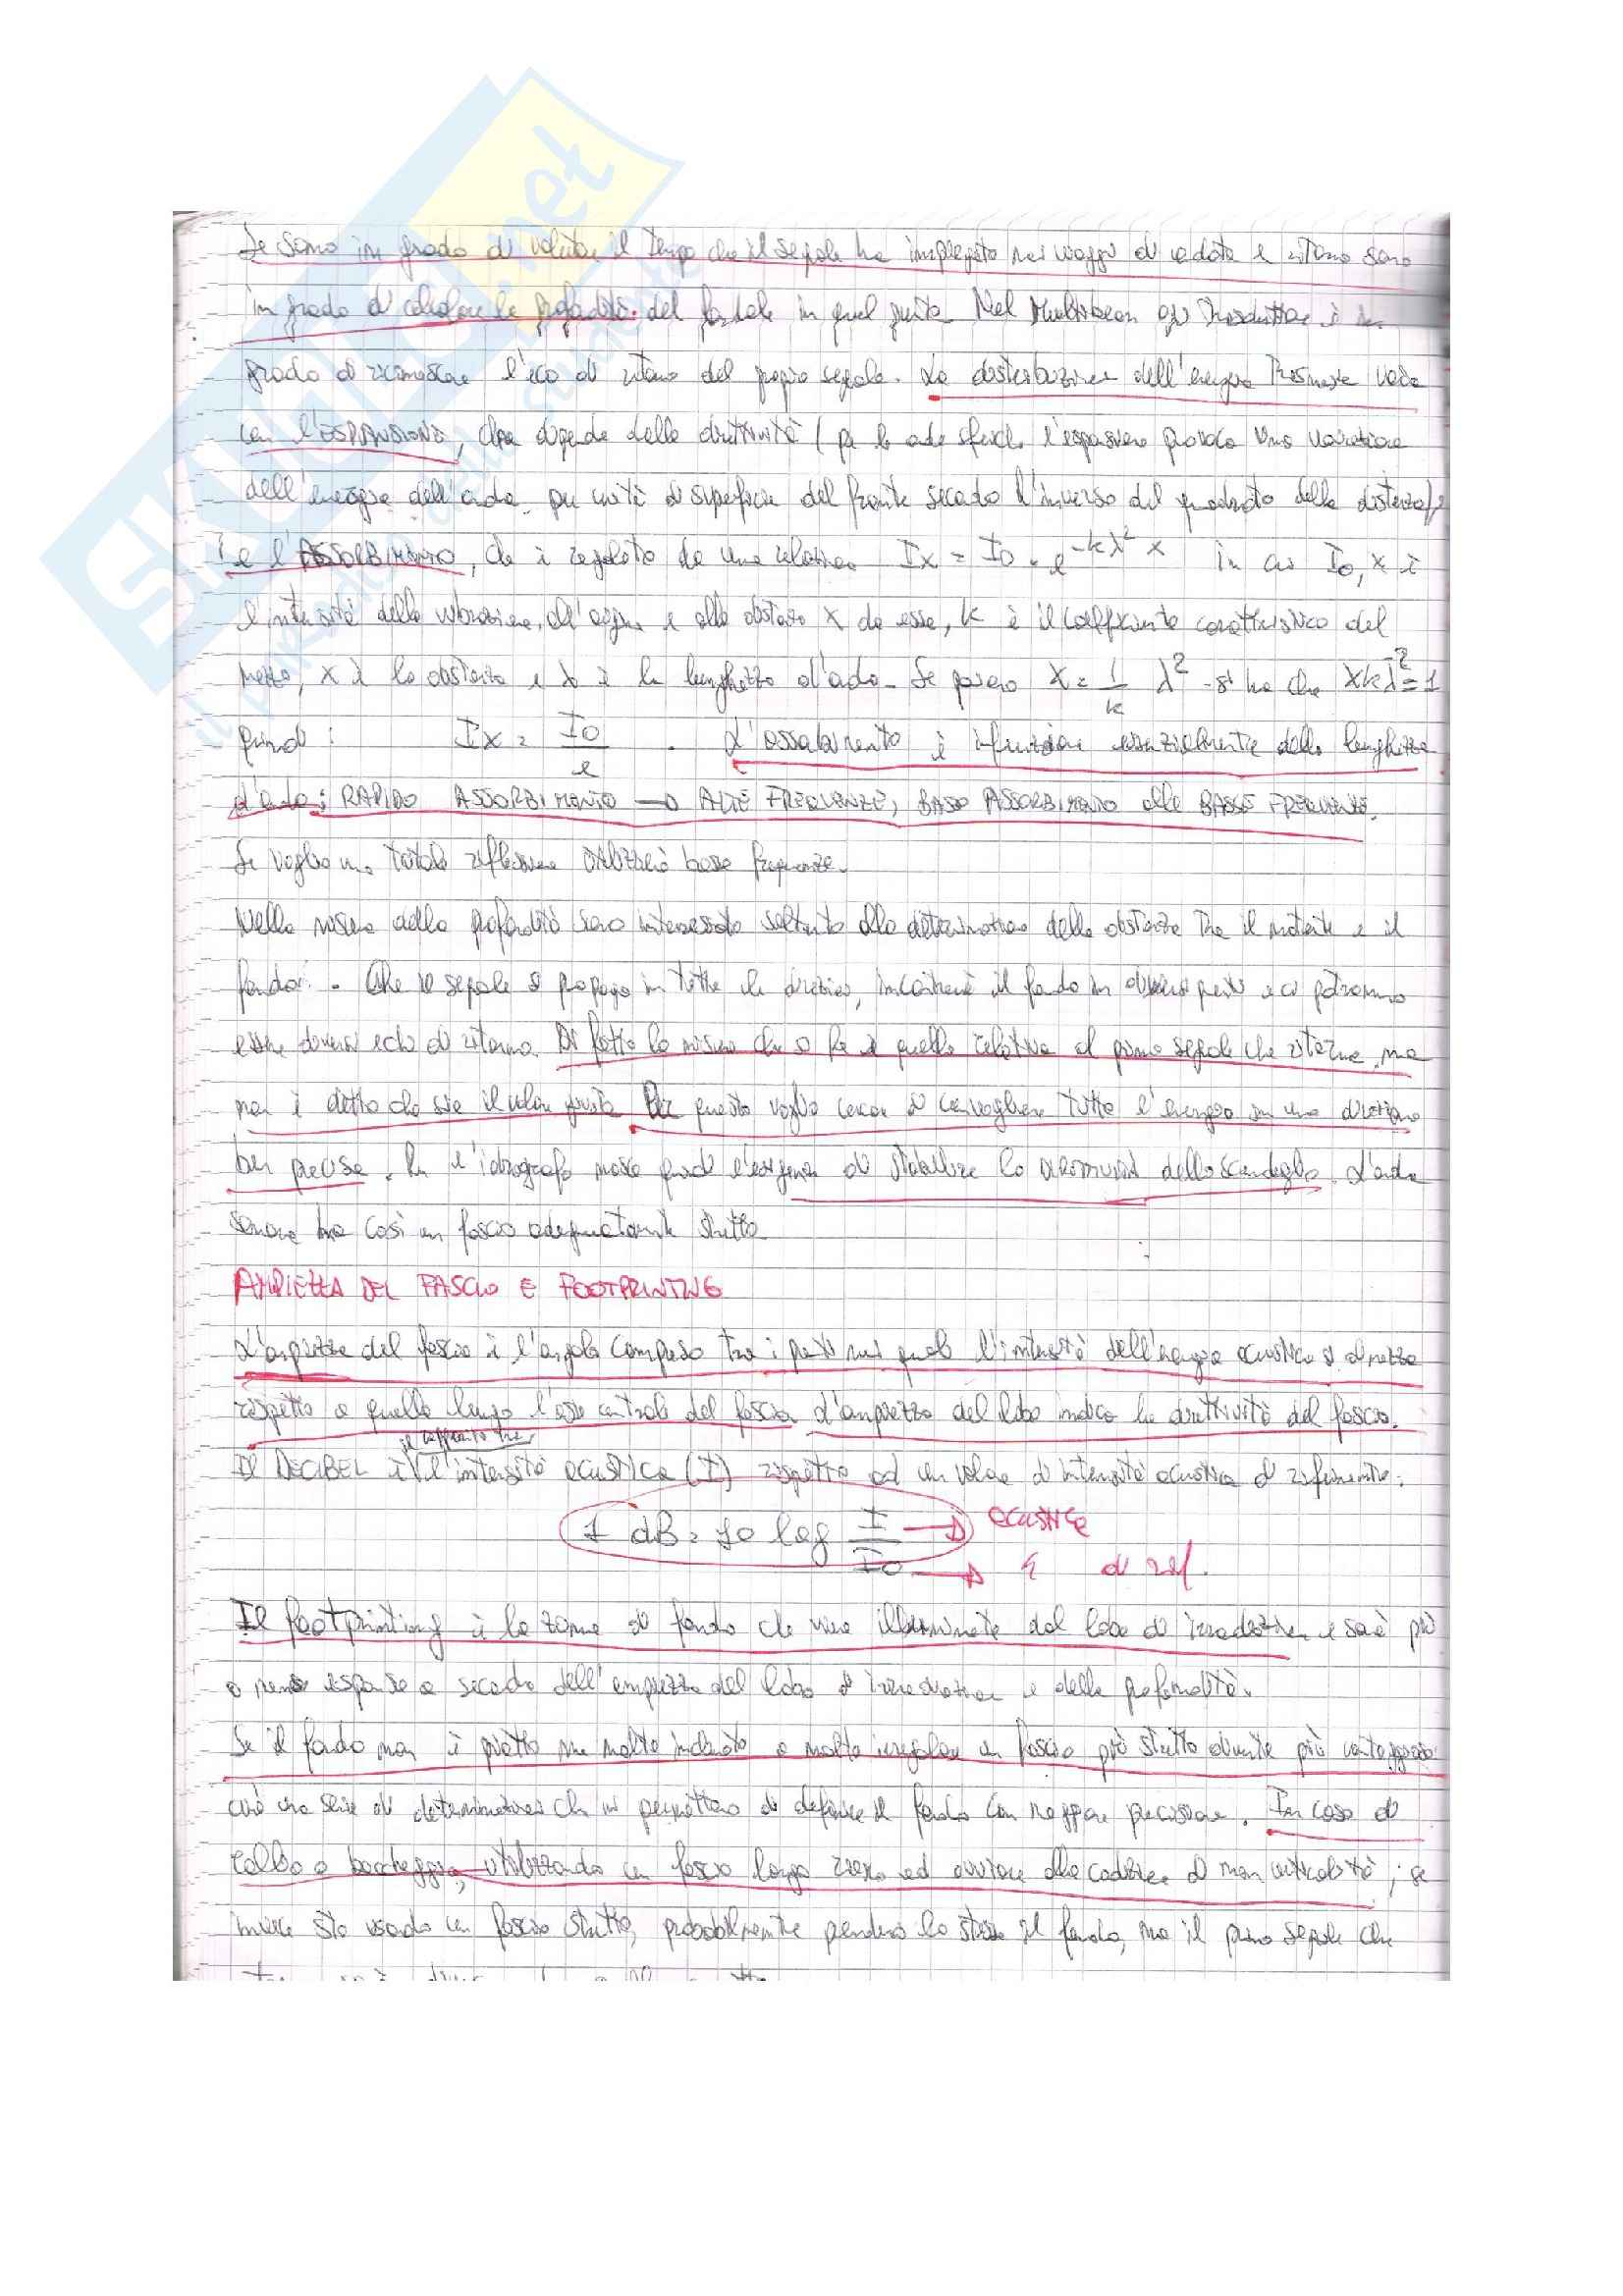 Se sono in grado di valutare il tempo che il segnale ha impiegato nei viaggi di andata e ritorno sono
in grado di calcolare la profondità del fondale in quel punto. Nel Multibeam ogni trasduttore è in
grado di riconoscere l'eco di ritorno del proprio segnale. La distribuzione dell'energia trasmessa varia
con l'ESPANSIONE, che dipende dalla direttività (per le onde sferiche l'espansione provoca una variazione
dell'energia dell'onda per unità di superficie del fronte secondo l'inverso del quadrato della distanza)
e l'ASSORBIMENTO, che è regolato da una relazione Ix = I0 · e^-kλ² x in cui I0, x è
l'intensità della vibrazione, all'origine e alla distanza x da essa, k è il coefficiente caratteristico del
mezzo, x è la distanza e λ è la lunghezza d'onda. Se poniamo x = 1/k λ² si ha che xkλ^-2 = 1
quindi: Ix = I0/e . L'assorbimento è in funzione essenzialmente della lunghezza
d'onda: RAPIDO ASSORBIMENTO → ALTE FREQUENZE, BASSO ASSORBIMENTO alle BASSE FREQUENZE.
Se voglio una totale riflessione utilizzerò basse frequenze.
Nella misura della profondità sono interessato soltanto alla determinazione della distanza tra il natante e il
fondo. Che il segnale si propaga in tutte le direzioni, incontrerà il fondo in diversi punti e ci potranno
essere diversi echi di ritorno. Di fatto la misura che si fa è quella relativa al primo segnale che ritorna, ma
non è detto che sia il valore giusto. Per questo voglio cercare di convogliare tutta l'energia in una direzione
ben precisa. In l'idrografo nasce quindi l'esigenza di stabilire la direttività dello scandaglio. L'onda
sonora ha così un fascio adeguatamente stretto
AMPIEZZA DEL FASCIO E FOOTPRINTING
L'ampiezza del fascio è l'angolo compreso tra i punti nei quali l'intensità dell'energia acustica si dimezza
rispetto a quella lungo l'asse centrale del fascio. L'ampiezza del lobo indica la direttività del fascio.
il rapporto tra
Il DECIBEL è l'intensità acustica (I) rispetto ad un valore di intensità acustica di riferimento:
1 dB = 10 log I/I0 → acustica
→ di rif.
Il footprinting è la zona di fondo che viene illuminata dal lobo di irradiazione e sarà più
o meno espansa a seconda dell'ampiezza del lobo di irradiazione e della profondità.
Se il fondo non è piatto ma molto inclinato o molto irregolare un fascio più stretto diventa più vantaggioso:
avrò una serie di determinazioni che mi permettono di definire il fondo con maggiore precisione. In caso di
rollio o beccheggio, utilizzando un fascio largo riesco ad ovviare alla condizione di non verticalità; se
invece sto usando un fascio stretto, probabilmente prenderò lo stesso il fondo, ma il primo segnale che